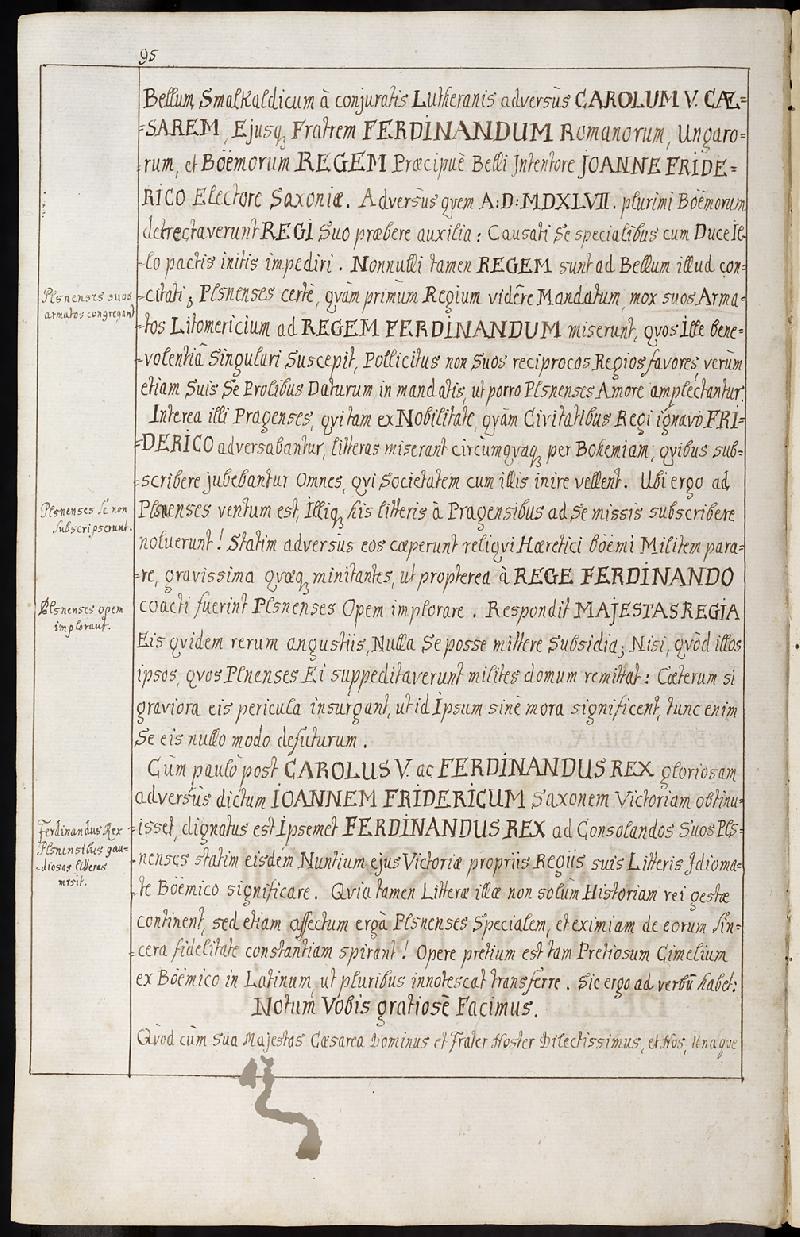 95
Bellum Smalkaldicum à conjuratis Lutheranis adversus CAROLUM V. CÆ=
=SAREM, Ejusq; Fratrem FERDINANDUM Romanorum, Ungaro=
rum, et Boëmorum REGEM Præcipuè Belli Intentore JOANNE FRIDE=
RICO Electore Saxoniæ. Adversus quem A: D: MDXLVII. plurimi Boëmorum
detrectaverunt REGI Suo præbere auxilia: Causati Se specialibus cum Duce Il=
lo pactis initis impediri. Nonnulli tamen REGEM sunt ad Bellum illud con=
Plsnenses suos
armatos congregant
=citati; Plsnenses certè, quàm primùm Regium vidêre Mandatum, mox suos Arma=
tos Litomericium ad REGEM FERDINANDUM miserunt, quos Ille bene=
=volentiâ Singulari Suscepit, Pollicitus non Suos reciprocos Regios favores, verùm
etiam Suis Se Prolibus Daturum in mandatis, ut porro Plsnenses Amore amplectantur.
Interea illi Pragenses, qui tam ex Nobilitate, quàm Civitatibus Regi ignavo FRI=
=DERICO adversabantur, litteras miserant circumquaq; per Bohemiam, quibus sub=
scribere jubebantur Omnes, qui Societatem cum illis inire vellent. Ubi ergo ad
Plsnenses se non
subscripserunt.
Plsnenses ventum est, Illiq; his litteris à Pragensibus ad Se missis subscribere
noluerunt! Statim adversus eos cæperunt reliqvi Hæretici boëmi Militem para=
=re, gravissima quæq; minitantes, ut propterea à REGE FERDINANDO
Plsnenses opem
implorant.
coacti fuerint Plsnenses Opem implorare. Respondit MAJESTAS REGIA
Eis quidem rerum angustiis, Nulla Se posse mittere Subsidia; Nisi, quòd illos
ipsos, quos Plnenses Ei suppeditaverunt milites domum remittat: Cæterum si
graviora eis pericula insurgant, ut id Ipsum sinè mora significent, tunc enim
Se eis nullo modo defuturum.
Cùm paulò post CAROLUS V. ac FERDINANDUS REX gloriosam
adversùs dictum IOANNEM FRIDERICUM Saxonem Victoriam obtinu=
Ferdinandus Rex
Plsnensibus gau=
diosas litteras
misit.
=isset, dignatus est Ipsemet FERDINANDUS REX ad Consolandos Suos Pls=
=nenses statim eisdem Nuntium ejus Victoriæ propriis Regiis suis Litteris Idioma=
te Boëmico significare. Quia tamen Litteræ illæ non solùm Historiam rei gestæ
continent, sed etiam affectum ergà Plsnenses Specialem, et eximiam de eorum sin=
cera fidelitate constantiam spirant! Opere pretium est tam Pretiosum Cimelium
ex Boëmico in Latinum, ut pluribus innotescat transferre. Sic ergo ad verbū habet:
Notum Vobis gratiosè Facimus.
Quod cùm Sua Majestas Cæsarea Dominus et Frater Noster Dilectissimus, et Nos, Unaque